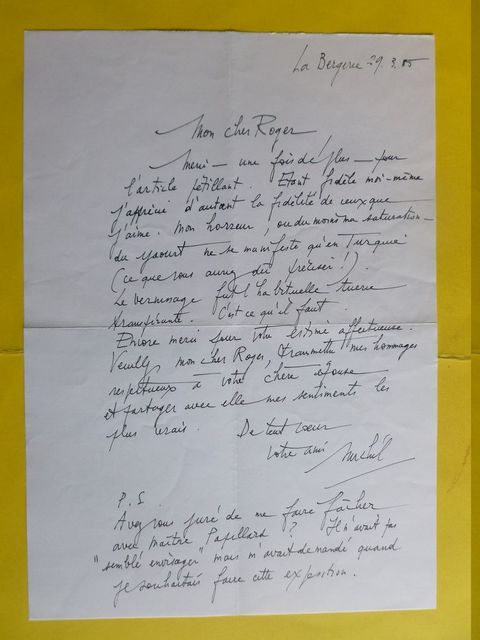 La Bergerie 29.3.85
Mon cher Roger,
Merci – une fois de plus – pour
l'article pétillant. Etant fidèle moi-même
j'apprécie d'autant la fidélité de ceux que
j'aime. Mon horreur, ou du moins ma saturation –
du yaourt ne se manifeste qu'en Turquie
(ce que vous auriez dû préciser!).
Le vernissage fut l'habituelle tuerie
transpirante. C'est ce qu'il faut.
Encore merci pour votre estime affectueuse.
Veuillez, mon cher Roger, transmettre mes hommages
respectueux à votre chère épouse
et partager avec elle mes sentiments les
plus vrais. De tout cœur
votre ami Michel
P.S.
Avez vous juré de me faire fâcher
avec Maître Papillard ? Il n'avait pas
"semblé envisager" mais m'avait demandé quand
je souhaitais faire cette exposition.